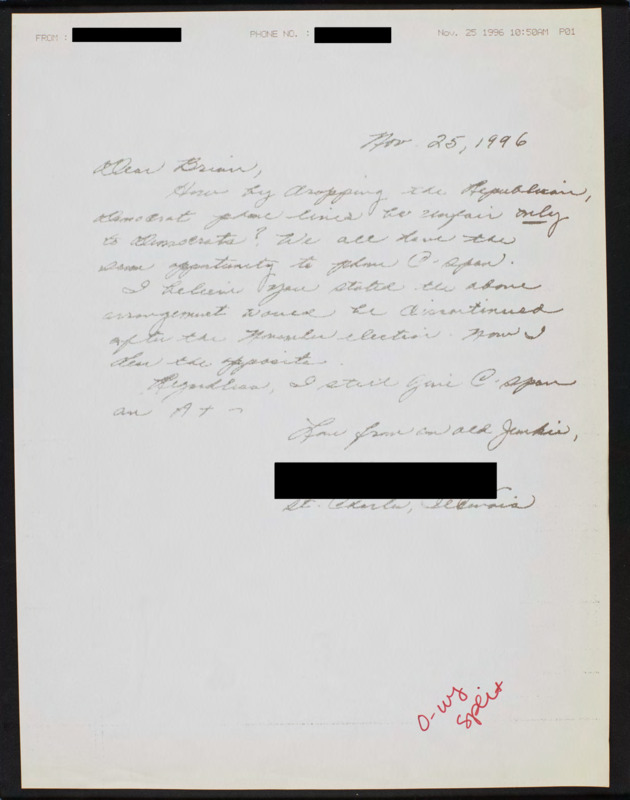 FROM : PHONE NO. : Nov. 25 1996 10:50AM P01
Nov 25, 1996
Dear Brian,
How by dropping the Republican,
Democrat phone lines be unfair only
to Democrats? We all have the
same opportunity to phone C-span.
I believe you stated the above
arrangement would be discontinued
after the November election. Now I
hear the opposite.
Republican, I still give C-span
an A+ -
Love from an old Junkie,
St. Charles, Illinois
O-wy
split